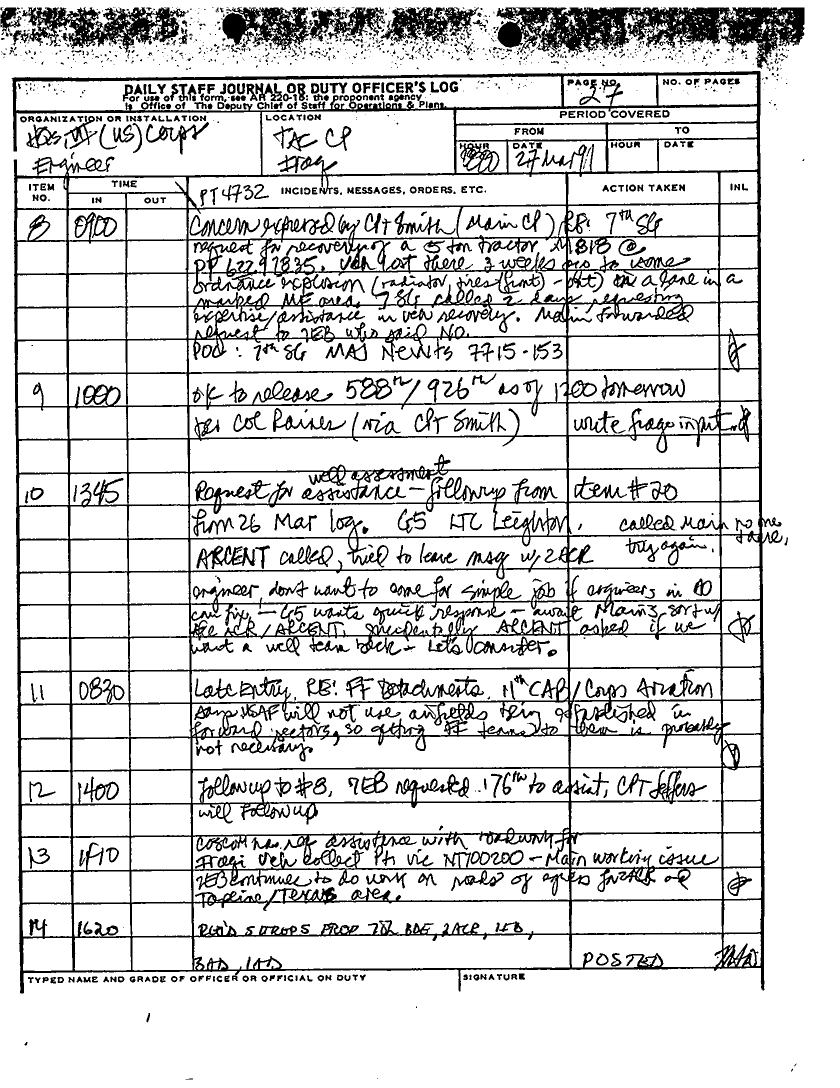 DAILY STAFF JOURNAL OR DUTY OFFICER'S LOG
For use of this form, see AR 220-15; the proponent agency
is Office of The Deputy Chief of Staff for Operations & Plans.
PAGE NO.
27
NO. OF PAGES
ORGANIZATION OR INSTALLATION
(US) Corps
Engineer
LOCATION
TAC CP
Iraq
PERIOD COVERED
FROM
TO
HOUR
DATE
27 Mar 91
HOUR
DATE
ITEM NO.
TIME
IN
OUT
PT 4732
INCIDENTS, MESSAGES, ORDERS, ETC.
ACTION TAKEN
INL
8 0900 Concern expressed by CPT Smith (Main CP) RE: 7th SG
request for recovery of a 5 ton tractor, M818 @
Veh lost there 3 weeks ago to some
ordnance explosion (radiator, tires (front) - out) on a lane in a
marked MF area. 7 SG called 2 days requesting
expertise/assistance in veh recovery. Main forwarded
request to 7EB who said NO.
POC: 7th SG MAJ 7715-153
9 1000 OK to release 588th/926th as of 1200 tomorrow
per COL Raines (via CPT Smith) write frago input.
10 1345 Request for well assessment assistance - followup from item #20
from 26 Mar log. G5 LTC Leighton. called Main no one there,
try again.
ARCENT called, tried to leave msg w/ 2ACR
engineer, don't want to come for simple job if engineers in AO
can fix. - G5 wants quick response - await Main's sort w/
ACR/ARCENT. Incidentally ARCENT asked if we
want a well team back - Let's consider.
11 0830 Late Entry, RE: FF Detachments, 11th CAB/Corps Aviation
says USAF will not use airfields being established in
forward sectors, so getting FF teams to them is probably
not necessary.
12 1400 Followup to #8, 7EB requested 176th to assist, CPT Jeffers
will follow up
13 1410 COSCOM has req assistance with roadwork for
Iraqi Veh Collect Pt vic NT700200 - Main working issue
7EB continues to do work on roads of egress for 2ACR
Tapline/Texas area.
14 1620 REC'D SITREPS FROM BDE, 2ACR,
3AD, 1AD POSTED
TYPED NAME AND GRADE OF OFFICER OR OFFICIAL ON DUTY
SIGNATURE